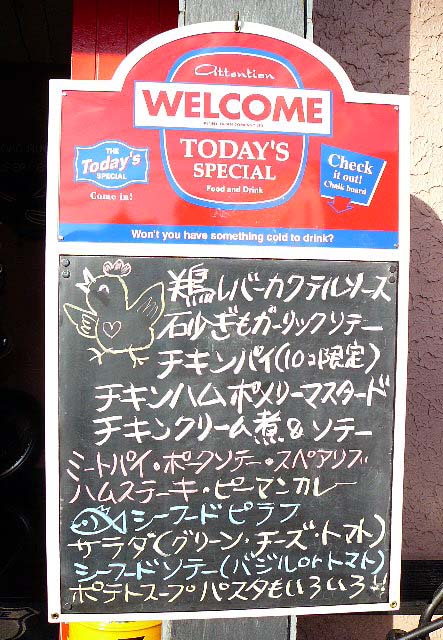 Attention
WELCOME
TODAY'S
SPECIAL
Food and Drink
THE
Today's
SPECIAL
Come in!
Check
it out!
Chalk board
Won't you have something cold to drink?
鶏レバーカクテルソース
砂ぎもガーリックソテー
チキンパイ(10コ限定)
チキンハムポメリーマスタード
チキンクリーム煮&ソテー
ミートパイ・ポークソテー・スペアリブ
ハムステーキ・ピーマンカレー
シーフードピラフ
サラダ(グリーン・チーズ・トマト)
シーフードソテー(バジルorトマト)
ポテトスープ パスタもいろいろ!!